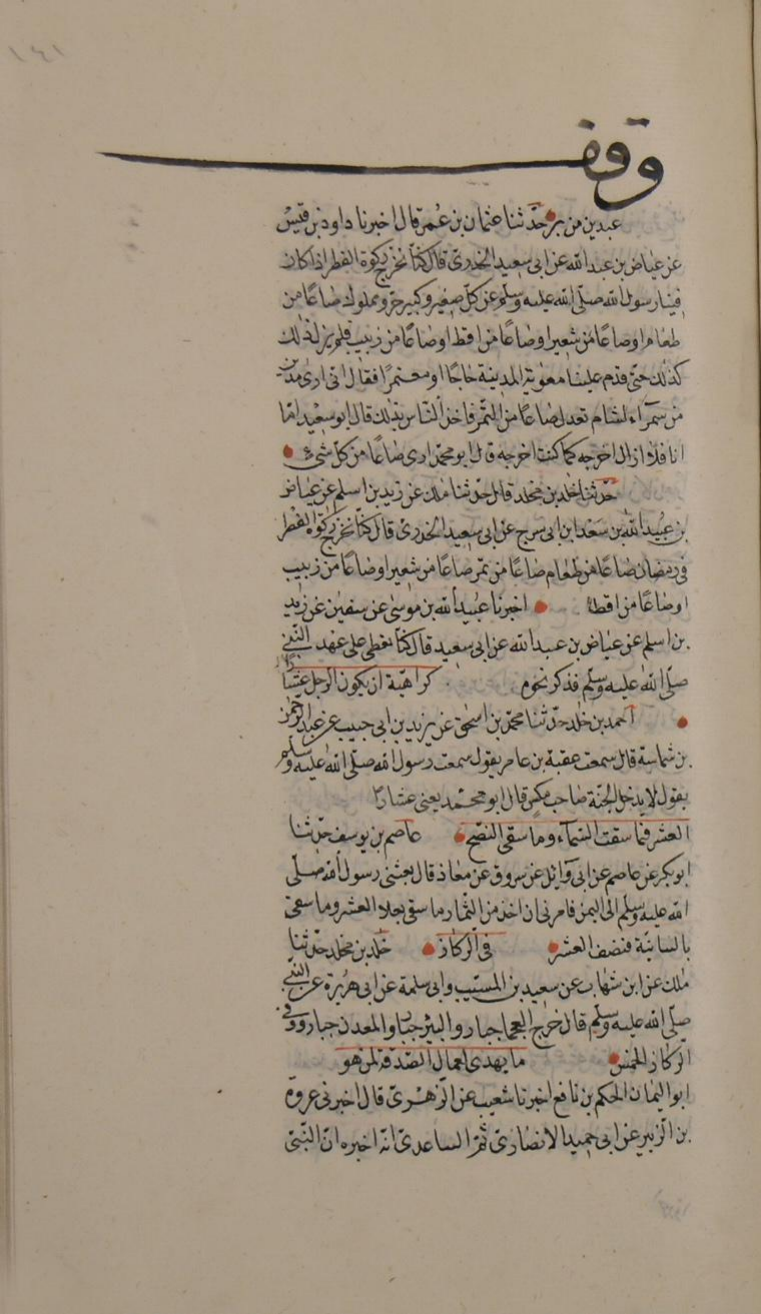 ١٤١
وقف
عبد بن من بر حدثنا عثمان بن عمر قال اخبرنا داود بن قيس
عن عياض بن عبد الله عن ابى سعيد الخدرى قال كنا نخرج زكوة الفطر اذا كان
فينا رسول الله صلى الله عليه وسلم عن كل صغير وكبير حر ومملوك صاعا من
طعام او صاعا من شعير او صاعا من اقط او صاعا من زبيب فلم يزل ذلك
كذلك حتى قدم علينا معوية المدينة حاجا او معتمرا فقال انى ارى مدين
من سمراء الشام تعدل صاعا من التمر فاخذ الناس بذلك قال ابو سعيد اما
انا فلا ازال اخرجه كما كنت اخرجه قال ابو محمد ارى صاعا من كل شىء
حدثنا خلد بن مخلد قال حدثنا ملك عن زيد بن اسلم عن عياض
بن عبيد الله بن سعد ابن ابى سرح عن ابى سعيد الخدرى قال كنا نخرج زكوة الفطر
فى رمضان صاعا من طعام صاعا من تمر صاعا من شعير او صاعا من زبيب
او صاعا من اقط اخبرنا عبيد الله بن موسى عن سفين عن زيد
بن اسلم عن عياض بن عبد الله عن ابى سعيد قال كنا نعطى على عهد النبى
صلى الله عليه وسلم فذكر نحوه كراهية ان يكون الرجل عشارا
احمد بن خلد حدثنا محمد بن اسحق عن يزيد بن ابى حبيب عن عبد الرحمن
بن شماسة قال سمعت عقبة بن عامر يقول سمعت رسول الله صلى الله عليه وسلم
يقول لا يدخل الجنة صاحب مكس قال ابو محمد يعنى عشارا
العشر فيما سقت السماء وما سقى النضح عاصم بن يوسف حدثنا
ابو بكر عن عاصم عن ابى وائل عن مسروق عن معاذ قال بعثنى رسول الله صلى
الله عليه وسلم الى اليمن فامرنى ان اخذ من الثمار ما سقى بعلا العشر وما سقى
بالسانية فنصف العشر فى الركاز خلد بن مخلد حدثنا
ملك عن ابن شهاب عن سعيد بن المسيب وابى سلمة عن ابى هريرة عن النبى
صلى الله عليه وسلم قال جرح العجما جبار والبئر جبار والمعدن جبار وفى
الركاز الخمس ما يهدى لعمال الصدقة لمن هو
ابو اليمان الحكم بن نافع اخبرنا شعيب عن الزهرى قال اخبرنى عروة
بن الزبير عن ابى حميد الانصارى ثم الساعدى انه اخبره ان النبى